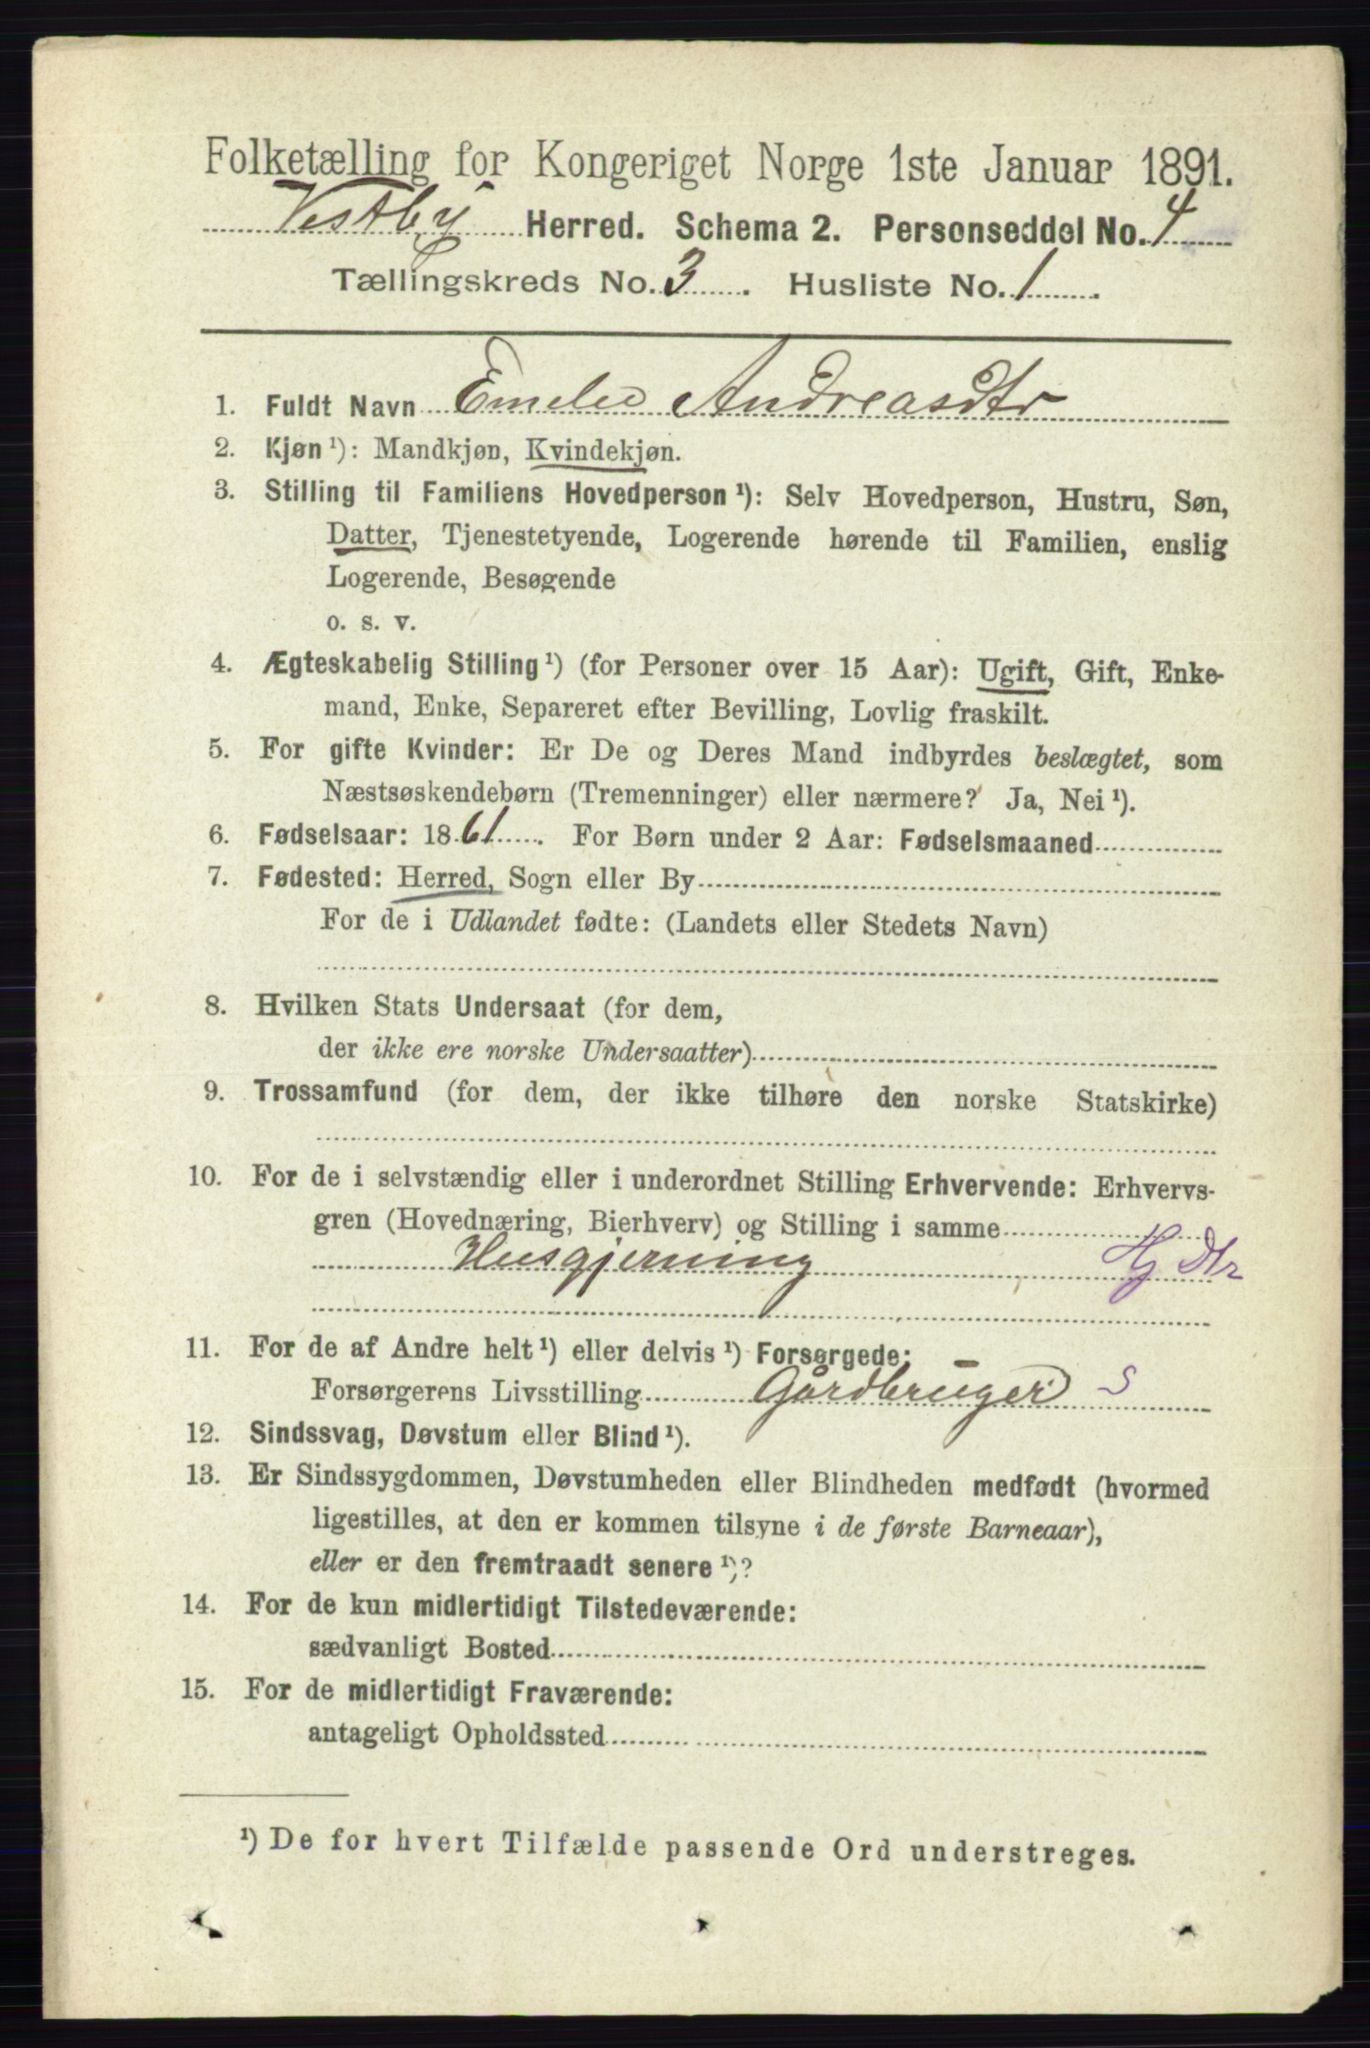 Folketælling for Kongeriget Norge 1ste Januar 1891.
Vestby Herred. Schema 2. Personseddel No. 4
Tællingskreds No. 3. Husliste No. 1.
1. Fuldt Navn Emelie Andreasdtr
2. Kjøn ¹): Mandkjøn, Kvindekjøn.
3. Stilling til Familiens Hovedperson ¹): Selv Hovedperson, Hustru, Søn,
Datter, Tjenestetyende, Logerende hørende til Familien, enslig
Logerende, Besøgende
o. s. v.
4. Ægteskabelig Stilling ¹) (for Personer over 15 Aar): Ugift, Gift, Enke-
mand, Enke, Separeret efter Bevilling, Lovlig fraskilt.
5. For gifte Kvinder: Er De og Deres Mand indbyrdes beslægtet, som
Næstsøskendebørn (Tremenninger) eller nærmere? Ja, Nei ¹).
6. Fødselsaar: 1861. For Børn under 2 Aar: Fødselsmaaned
7. Fødested: Herred, Sogn eller By
For de i Udlandet fødte: (Landets eller Stedets Navn)
8. Hvilken Stats Undersaat (for dem,
der ikke ere norske Undersaatter)
9. Trossamfund (for dem, der ikke tilhøre den norske Statskirke)
10. For de i selvstændig eller i underordnet Stilling Erhvervende: Erhvervs-
gren (Hovednæring, Bierhverv) og Stilling i samme
Husgjerning Hj Dtr
11. For de af Andre helt ¹) eller delvis ¹) Forsørgede:
Forsørgerens Livsstilling Gårdbruger S
12. Sindssvag, Døvstum eller Blind ¹).
13. Er Sindssygdommen, Døvstumheden eller Blindheden medfødt (hvormed
ligestilles, at den er kommen tilsyne i de første Barneaar),
eller er den fremtraadt senere ¹)?
14. For de kun midlertidigt Tilstedeværende:
sædvanligt Bosted
15. For de midlertidigt Fraværende:
antageligt Opholdssted
¹) De for hvert Tilfælde passende Ord understreges.